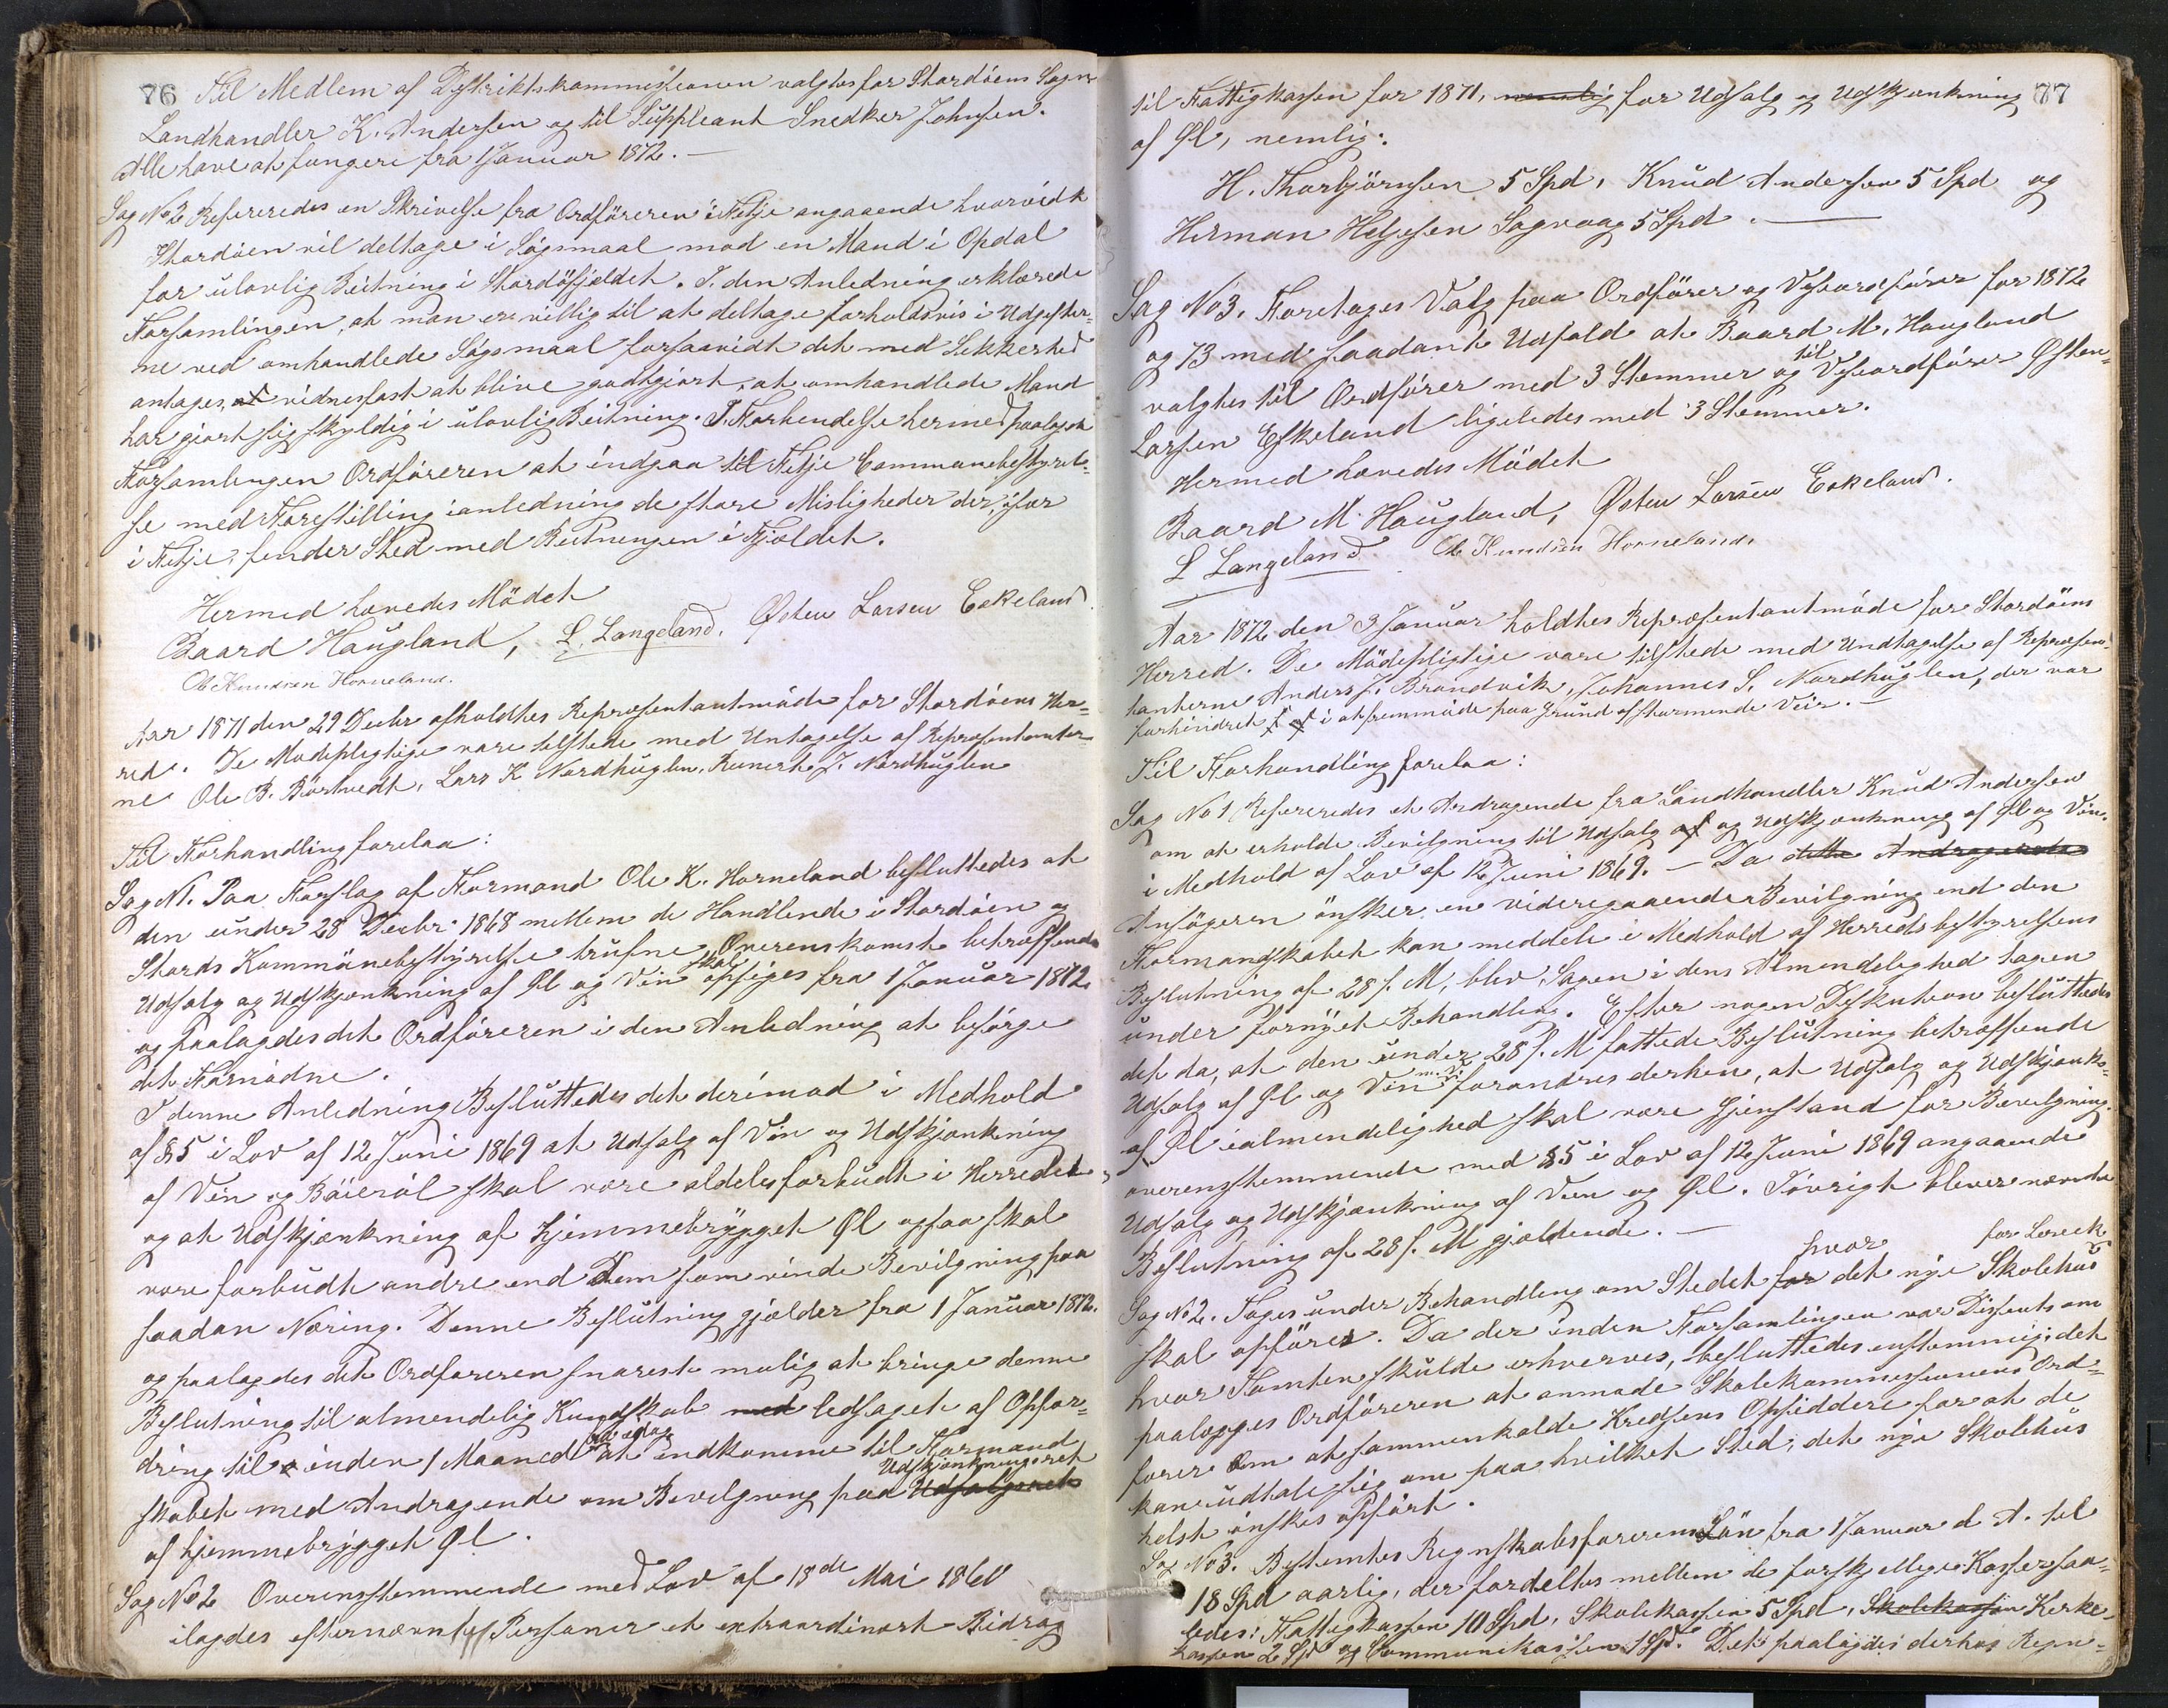 76 Til Medlem af Distriktskommissionen valgtes for Stordöens Sogn
Landhandler K. Andersen og til Suppleant Snedker Johnsen.
Alle have at fungere fra 1 Januar 1872. —
Sag No 2 Refereredes en Skrivelse fra Ordföreren i Fitje angaaende hvorvidt
Stordöen vil deltage i Sögsmaal mod en Mand i Opdal
for ulovlig Beitning i Stordöfjeldet. I den Anledning erklærede
Forsamlingen, at man er villig til at deltage forholdsvis i Udgifter-
ne ved omhandlede Sögsmaal forsaavidt det med Sikkerhed
antages, at vidnesfast at blive godtgjort, at omhandlede Mand
har gjort sig skyldig i ulovlig Beitning. I Forbindelse hermed paalagde
Forsamlingen Ordföreren at indgaa til Fitje Communebestyrel-
se med Forestilling i anledning de store Misligheder der, især
i Fitje, finder Sted med Beitningen i Fjeldet.
Hermed hævedes Mödet
Baard Haugland, L. Langeland. Østen Larsen Eskeland.
Ole Knudsen Horneland.
Aar 1871 den 29 Decbr afholdtes Repræsentantmöde for Stordöens Her-
red. De Mödepligtige vare tilstede med Untagelse af Repræsentanter-
ne Ole B. Börtvedt, Lars K Nordhuglen, Reinert J. Nordhuglen
Til Forhandling forelaa:
Sag N1. Paa Forslag af Formand Ole K. Horneland besluttedes at
den under 28 Decbr 1868 mellem de Handlende i Stordöen og
Stords Kommünebestyrelse trufne Overenskomst betreffende
Udsalg og Udskjænkning af Øl og Vin skal opsiges fra 1 Januar 1872
og paalagdes det Ordföreren i den Anledning at besörge
det Fornödne.
I denne Anledning Besluttedes det derimod i Medhold
af § 5 i Lov af 12 Juni 1869 at Udsalg af Vin og Udskjænkning
af Vin og Bäieröl skal være aldeles forbudt i Herredet
og at Udskjænkning af hjemmebrygget Øl ogsaa skal
være forbudt andre end Dem som vinde Bevilgning paa
saadan Næring. Denne Beslutning gjælder fra 1 Januar 1872.
og paalagdes det Ordföreren snarest mulig at bringe denne
Beslutning til almendelig Kundskab med ledsaget af Opfor-
dring til inden 1 Maaned at indkomme til Formand
skabet med Andragende om Bevilgning paa Udsalgsret Udskjænkningsret
af hjemmebrygget Øl.
Sag No 2 Overensstemmende med Lov af 18de Mai 1860
ilagdes efternævnte Personer et extraordinært Bidrag
til Fattigkassen for 1871, nemlig for Udsalg og Udskjænkning 77
af Øl, nemlig:
H. Thorbjörnsen 5 Spd, Knud Andersen 5 Spd og
Herman Helgesen Sagvaag 5 Spd. —
Sag No 3. Foretoges Valg paa Ordförer og Viseordförer for 1872
og 73 med saadant Udfald at Baard M. Haugland
valgtes til Ordförer med 3 Stemmer og til Viseordförer Østen
Larsen Eskeland ligeledes med 3 Stemmer.
Hermed hævedes Mödet
Baard M. Haugland, Østen Larsen Eskeland.
L Langeland Ole Knudsen Horneland
Aar 1872 den 3 Januar holdtes Repræsentantmöde for Stordöens
Herred. De Mödepligtige vare tilstede med Undtagelse af Repræsen-
tanterne Anders J. Brandvik, Johannes S. Nordhuglen, der var
forhindret i at fremmöde paa Grund af stormende Veir. —
Til Forhandling forelaa:
Sag No 1 Refereredes et Andragende fra Landhandler Knud Andersen
om at erholde Bevilgning til Udsalg af og Udskjænkning af Øl og Vin
i Medhold af Lov af 12 Juni 1869. — Da dette Andragende
Ansögeren önsker en videregaaende Bevilgning end den
Formandskabet kan meddele i Medhold af Herredsbestyrelsens
Beslutning af 28 f. M, blev Sagen i dens Almendelighed tagen
under fornyet Behandling. Efter nogen Diskution besluttedes
det da, at den under 28 f. M fattede Beslutning betreffende
Udsalg af Øl og Vin m. V. forandres derhen, at Udsalg og Udskjænk-
af Øl i almendelighed skal være Gjenstand for Bevilgning
overensstemmende med § 5 i Lov af 12 Juni 1869 angaaende
Udsalg og Udskjænkning af Vin og Øl. Iövrigt bliver nævnte
Beslutning af 28 f. M gjældende. —
Sag No 2. Toges under Behandling om Stedet for hvor det nye Skolehus for Lereck
skal opföres. Da der inden Forsamlingen var Dissents om
hvor Tomten skulde erhverves, besluttedes enstemmig; det
paalægges Ordföreren at anmode Skolekommissionens Ord-
förer om at sammenkalde Kredsens Opsiddere for at de
kan udtale sig om paa hvilket Sted, det nye Skolehus
helst önskes opfört.
Sag No 3. Bestemtes Regnskabsförerens Lön fra 1 Januar d. A. til
18 Spd aarlig, der fordeltes mellem de forskjellige Kasser saa-
ledes: Fattigkassen 10 Spd, Skolekassen 5 Spd, Skolekassen Kirke-
kassen 2 Spd og Communekassen 1 Spd. Det paalagdes derhos Regn-